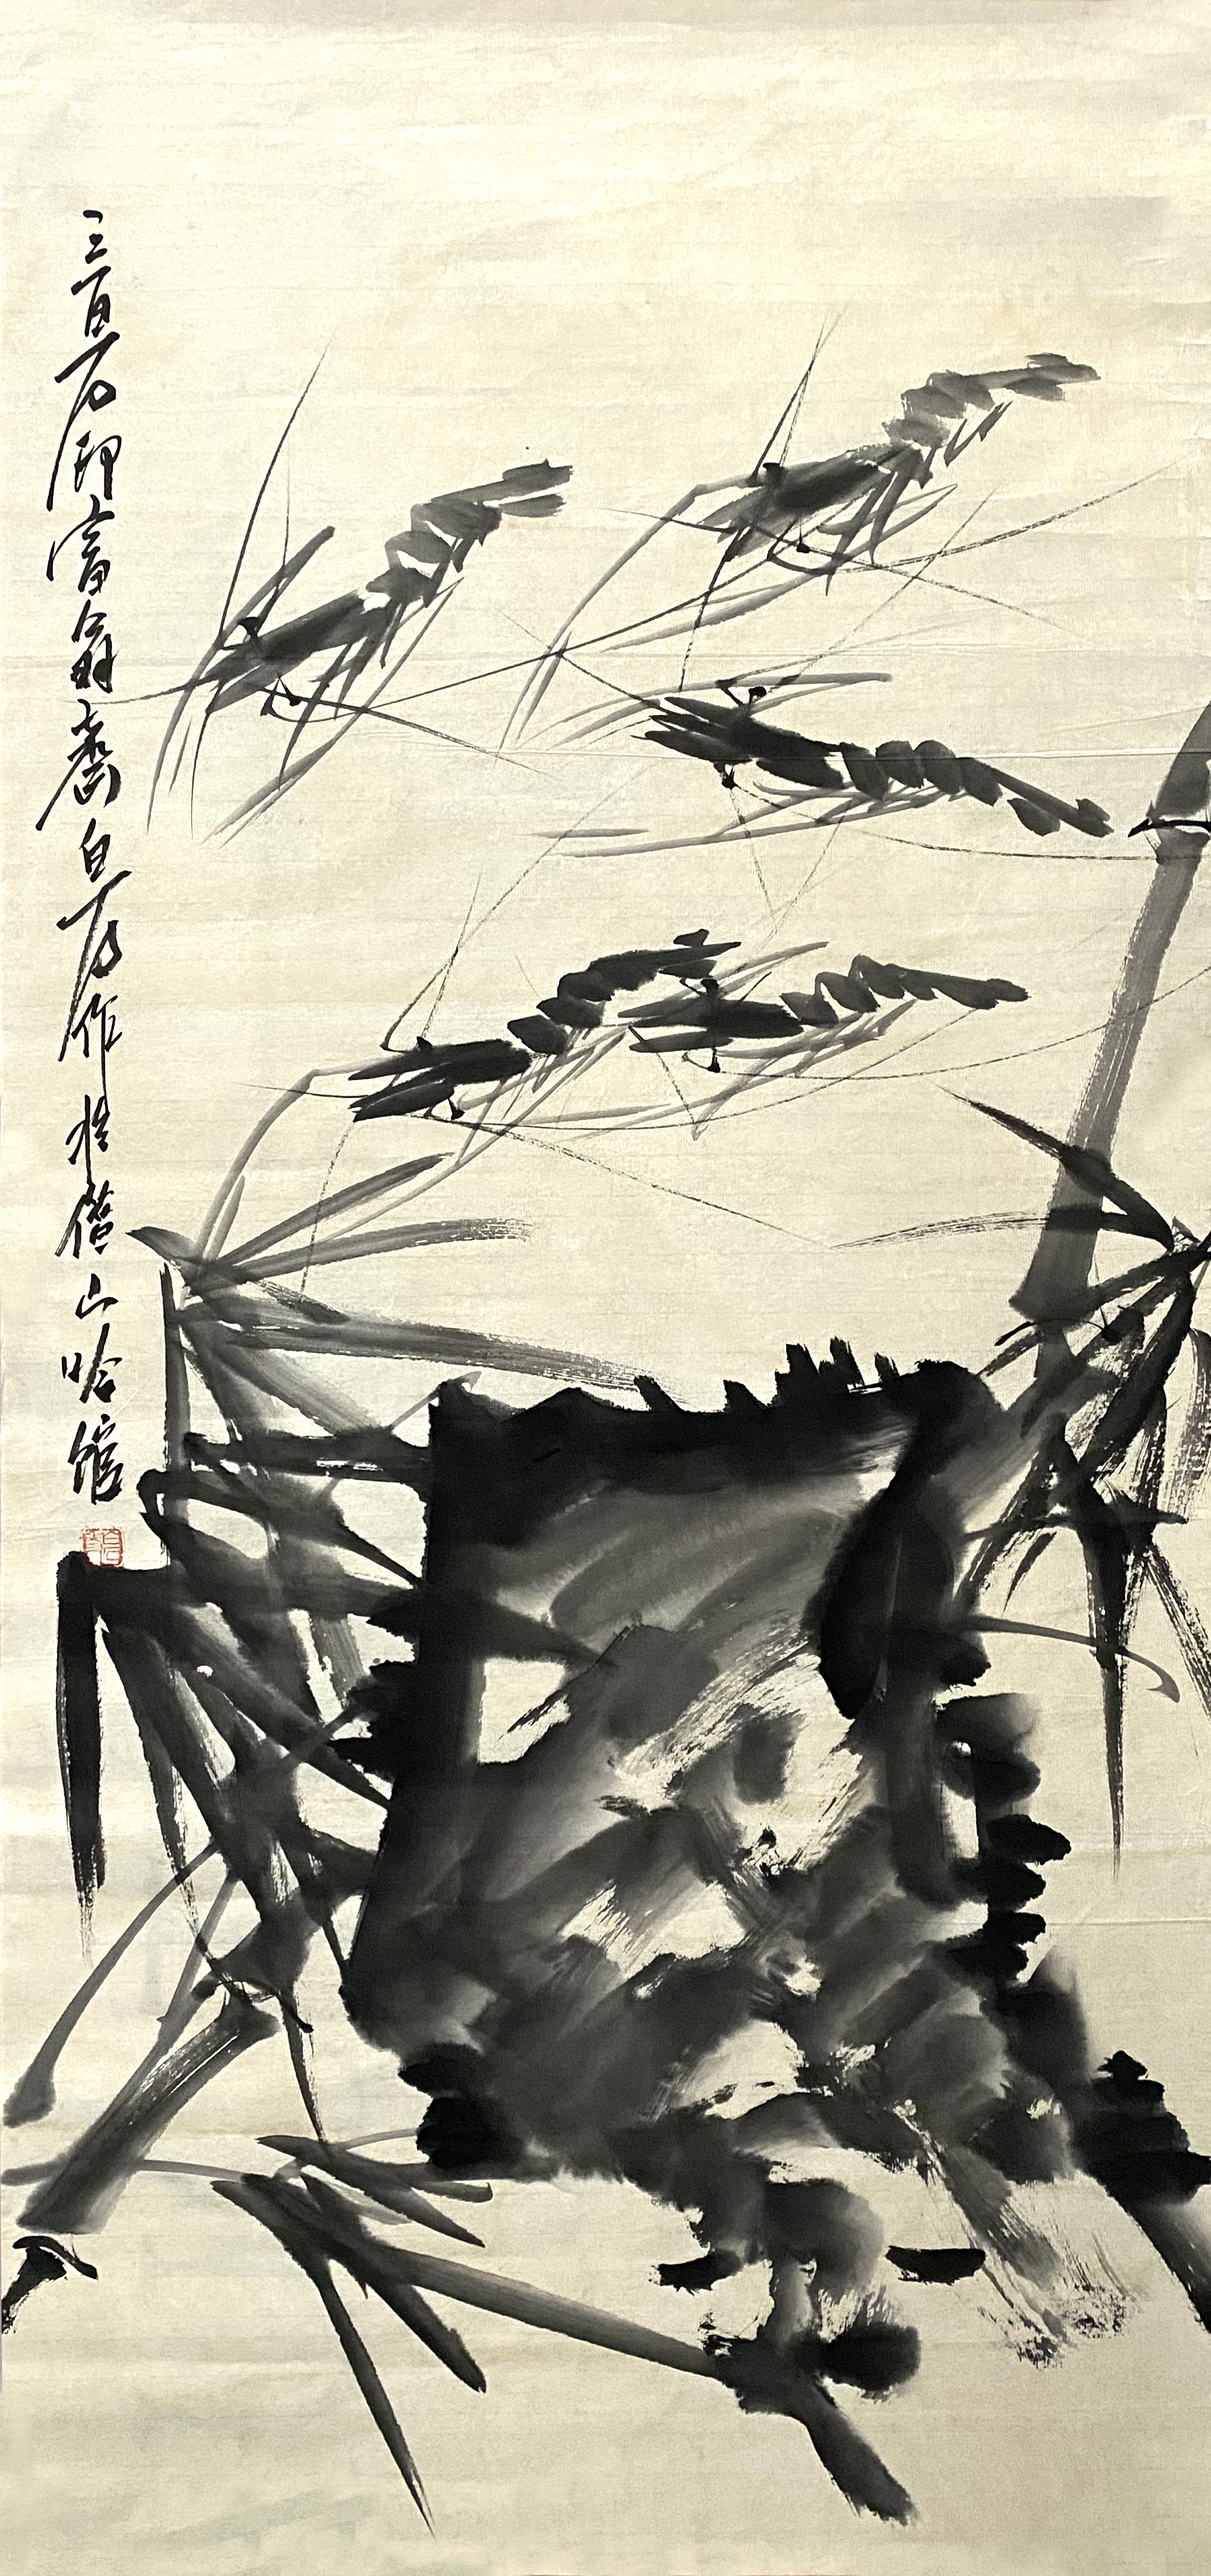 三百石印富翁齊白石作於借山吟館